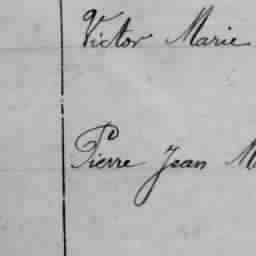 Victor Marie
Pierre Jean